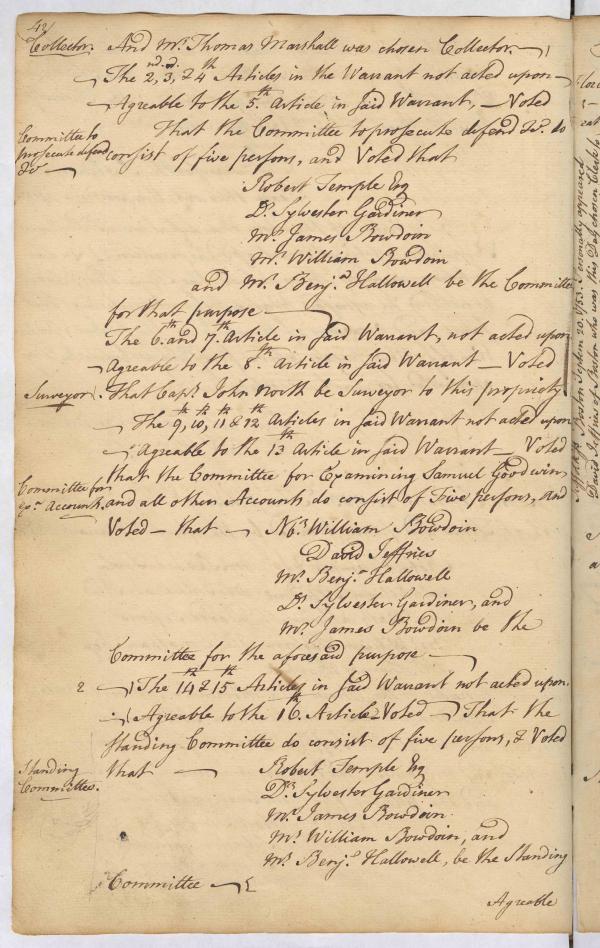 42
Collector. And Mr. Thomas Marshall was chosen Collector.
The 2nd, 3d, & 4th Articles in the Warrant not acted upon
Agreable to the 5th Article in said Warrant, — Voted
Committee to prosecute defend &c. — That the Committee to prosecute defend &c. do
consist of five persons, and Voted that
Robert Temple Esq
Dr. Sylvester Gardiner
Mr. James Bowdoin
Mr. William Bowdoin
and Mr. Benja. Hallowell be the Committee
for that purpose —
The 6th and 7th Article in said Warrant, not acted upon
Agreable to the 8th Article in said Warrant — Voted
Surveyor. That Capt. John North be Surveyor to this propriety
The 9, 10, 11 & 12th Articles in said Warrant not acted upon
Agreable to the 13th Article in said Warrant — Voted
that the Committee for Examining Samuel Goodwin
Committee for Accounts. and all other Accounts do consist of Five persons, and
Voted — that — William Bowdoin
David Jeffries
Mr. Benja. Hallowell
Dr. Sylvester Gardiner, and
Mr. James Bowdoin be the
Committee for the aforesaid purpose —
2 The 14 & 15th Articles in said Warrant not acted upon.
Agreable to the 16th Article Voted — That the
Standing Committee do consist of five persons, & Voted
Standing Committee. that — Robert Temple Esq
Dr. Sylvester Gardiner
Mr. James Bowdoin
Mr. William Bowdoin, and
Mr. Benja. Hallowell, be the Standing
Committee —
Agreable
Boston Septem 20. 1753. Personally appeared
David Jeffries of Boston who was this Day chosen Clerk to